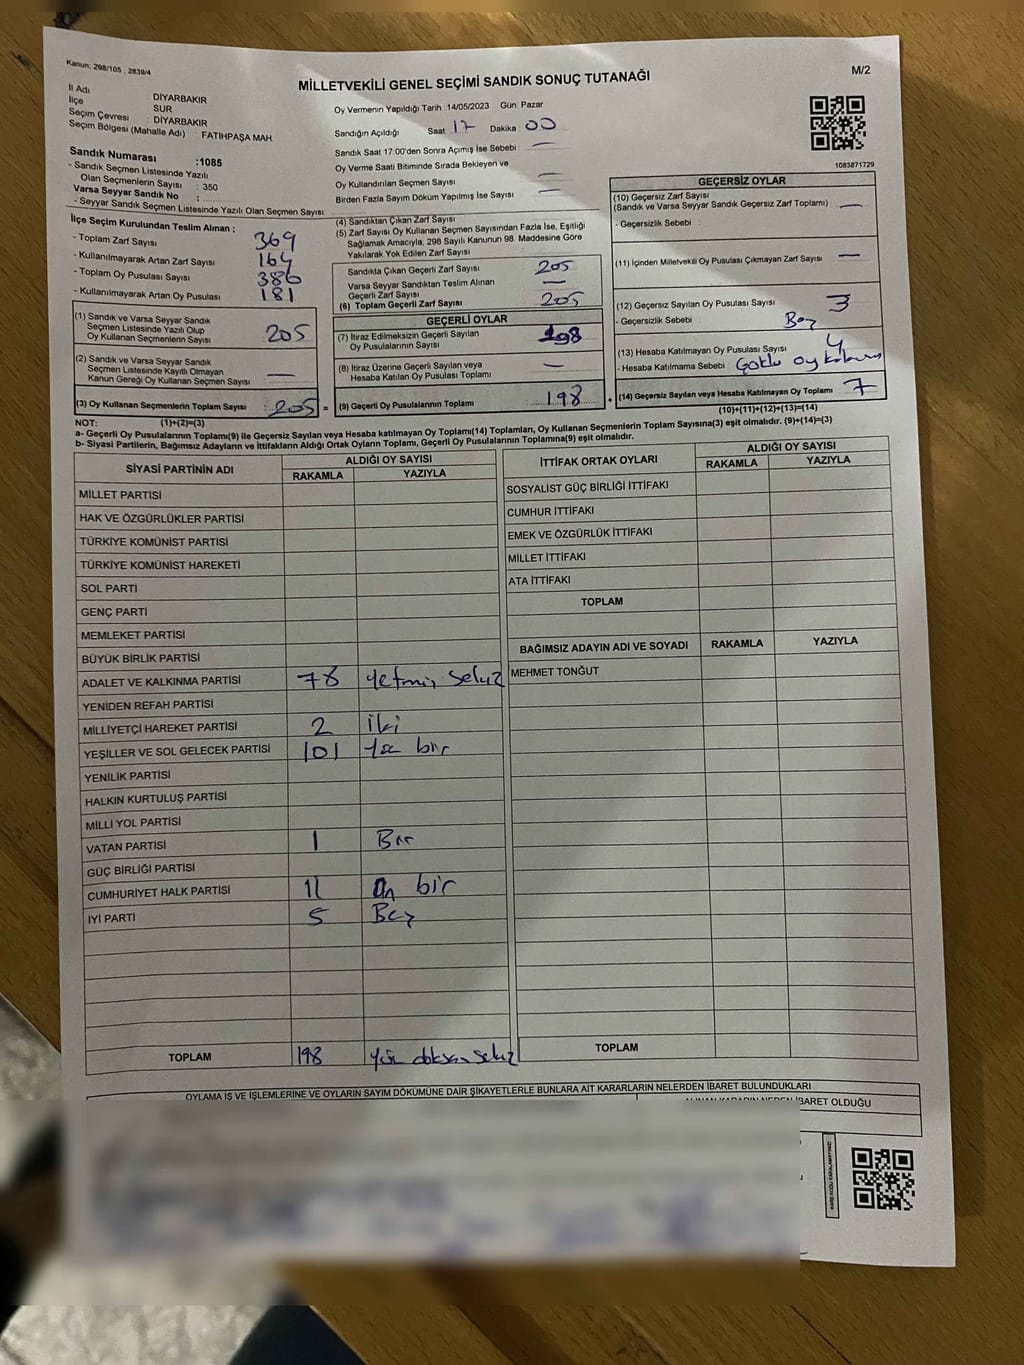 Kanun: 298/105 , 2839/4
MİLLETVEKİLİ GENEL SEÇİMİ SANDIK SONUÇ TUTANAĞI
M/2
İl Adı DİYARBAKIR
İlçe SUR
Seçim Çevresi : DİYARBAKIR
Seçim Bölgesi (Mahalle Adı) : FATİHPAŞA MAH.
Sandık Numarası :1085
- Sandık Seçmen Listesinde Yazılı
Olan Seçmenlerin Sayısı : 350
Varsa Seyyar Sandık No :
- Seyyar Sandık Seçmen Listesinde Yazılı Olan Seçmen Sayısı:
Oy Vermenin Yapıldığı Tarih :14/05/2023 Gün: Pazar
Sandığın Açıldığı Saat 17 Dakika 00
Sandık Saat 17:00'den Sonra Açımış İse Sebebi : —
Oy Verme Saati Bitiminde Sırada Bekleyen ve
Oy Kullandırılan Seçmen Sayısı —
Birden Fazla Sayım Döküm Yapılmış İse Sayısı —
1083871729
İlçe Seçim Kurulundan Teslim Alınan ;
- Toplam Zarf Sayısı 369
- Kullanılmayarak Artan Zarf Sayısı 164
- Toplam Oy Pusulası Sayısı 386
- Kullanılmayarak Artan Oy Pusulası 181
(1) Sandık ve Varsa Seyyar Sandık
Seçmen Listesinde Yazılı Olup
Oy Kullanan Seçmenlerin Sayısı 205
(2) Sandık ve Varsa Seyyar Sandık
Seçmen Listesinde Kayıtlı Olmayan
Kanun Gereği Oy Kullanan Seçmen Sayısı —
(3) Oy Kullanan Seçmenlerin Toplam Sayısı : 205 =
(1)+(2)=(3)
(4) Sandıktan Çıkan Zarf Sayısı
(5) Zarf Sayısı Oy Kullanan Seçmen Sayısından Fazla İse, Eşitliği
Sağlamak Amacıyla, 298 Sayılı Kanunun 98. Maddesine Göre
Yakılarak Yok Edilen Zarf Sayısı :
Sandıkta Çıkan Geçerli Zarf Sayısı 205
Varsa Seyyar Sandıktan Teslim Alınan
Geçerli Zarf Sayısı —
(6) Toplam Geçerli Zarf Sayısı 205
GEÇERLİ OYLAR
(7) İtiraz Edilmeksizin Geçerli Sayılan
Oy Pusulalarının Sayısı 198
(8) İtiraz Üzerine Geçerli Sayılan veya
Hesaba Katılan Oy Pusulası Toplamı —
(9) Geçerli Oy Pusulalarının Toplamı 198 +
GEÇERSİZ OYLAR
(10) Geçersiz Zarf Sayısı
(Sandık ve Varsa Seyyar Sandık Geçersiz Zarf Toplamı) —
- Geçersizlik Sebebi :
(11) İçinden Milletvekili Oy Pusulası Çıkmayan Zarf Sayısı —
(12) Geçersiz Sayılan Oy Pusulası Sayısı 3
- Geçersizlik Sebebi Boş
(13) Hesaba Katılmayan Oy Pusulası Sayısı 4
- Hesaba Katılmama Sebebi Çoklu oy
(14) Geçersiz Sayılan veya Hesaba Katılmayan Oy Toplamı 7
(10)+(11)+(12)+(13)=(14)
NOT:
a- Geçerli Oy Pusulalarının Toplamı(9) ile Geçersiz Sayılan veya Hesaba katılmayan Oy Toplamı(14) Toplamları, Oy Kullanan Seçmenlerin Toplam Sayısına(3) eşit olmalıdır. (9)+(14)=(3)
b- Siyasi Partilerin, Bağımsız Adayların ve İttifakların Aldığı Ortak Oyların Toplamı, Geçerli Oy Pusulalarının Toplamına(9) eşit olmalıdır.
SİYASİ PARTİNİN ADI ALDIĞI OY SAYISI
RAKAMLA YAZIYLA
MİLLET PARTİSİ
HAK VE ÖZGÜRLÜKLER PARTİSİ
TÜRKİYE KOMÜNİST PARTİSİ
TÜRKİYE KOMÜNİST HAREKETİ
SOL PARTİ
GENÇ PARTİ
MEMLEKET PARTİSİ
BÜYÜK BİRLİK PARTİSİ
ADALET VE KALKINMA PARTİSİ 78 yetmiş sekiz
YENİDEN REFAH PARTİSİ
MİLLİYETÇİ HAREKET PARTİSİ 2 iki
YEŞİLLER VE SOL GELECEK PARTİSİ 101 yüz bir
YENİLİK PARTİSİ
HALKIN KURTULUŞ PARTİSİ
MİLLİ YOL PARTİSİ
VATAN PARTİSİ 1 Bir
GÜÇ BİRLİĞİ PARTİSİ
CUMHURİYET HALK PARTİSİ 11 On bir
İYİ PARTİ 5 Beş
TOPLAM 198 yüz doksan sekiz
İTTİFAK ORTAK OYLARI ALDIĞI OY SAYISI
RAKAMLA YAZIYLA
SOSYALİST GÜÇ BİRLİĞİ İTTİFAKI
CUMHUR İTTİFAKI
EMEK VE ÖZGÜRLÜK İTTİFAKI
MİLLET İTTİFAKI
ATA İTTİFAKI
TOPLAM
BAĞIMSIZ ADAYIN ADI VE SOYADI RAKAMLA YAZIYLA
MEHMET TONĞUT
TOPLAM
OYLAMA İŞ VE İŞLEMLERİNE VE OYLARIN SAYIM DÖKÜMÜNE DAİR ŞİKAYETLERLE BUNLARA AİT KARARLARIN NELERDEN İBARET BULUNDUKLARI
ALINAN KARARIN NEDEN İBARET OLDUĞU